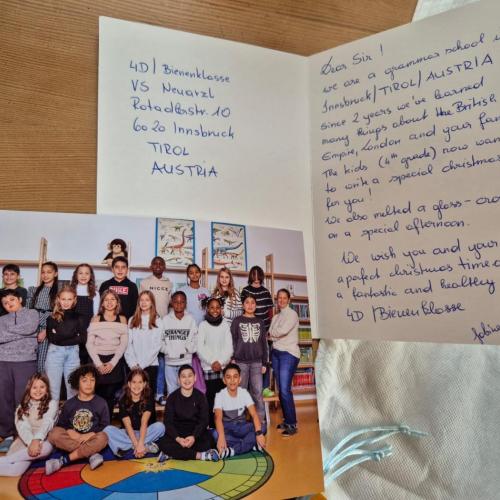 4D / Bienenklasse
VS Neuarzl
6020 Innsbruck
TIROL
AUSTRIA
Dear Sir!
we are a grammar school
Innsbruck/TIROL/AUSTRIA
Since 2 years we've learned
many things about the British
Empire, London and your
The kids (4th grade) now
to write a special christmas
for you!
We also melted a glass-
on a special afternoon.
We wish you and your
a perfect christmas time
a fantastic and healthy
4D / Bienenklasse
NICCE
STRANGER
THINGS